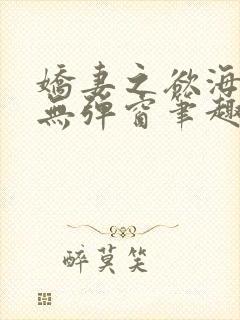 嬌妻之欲海
無彈窗筆趣
醉莫笑